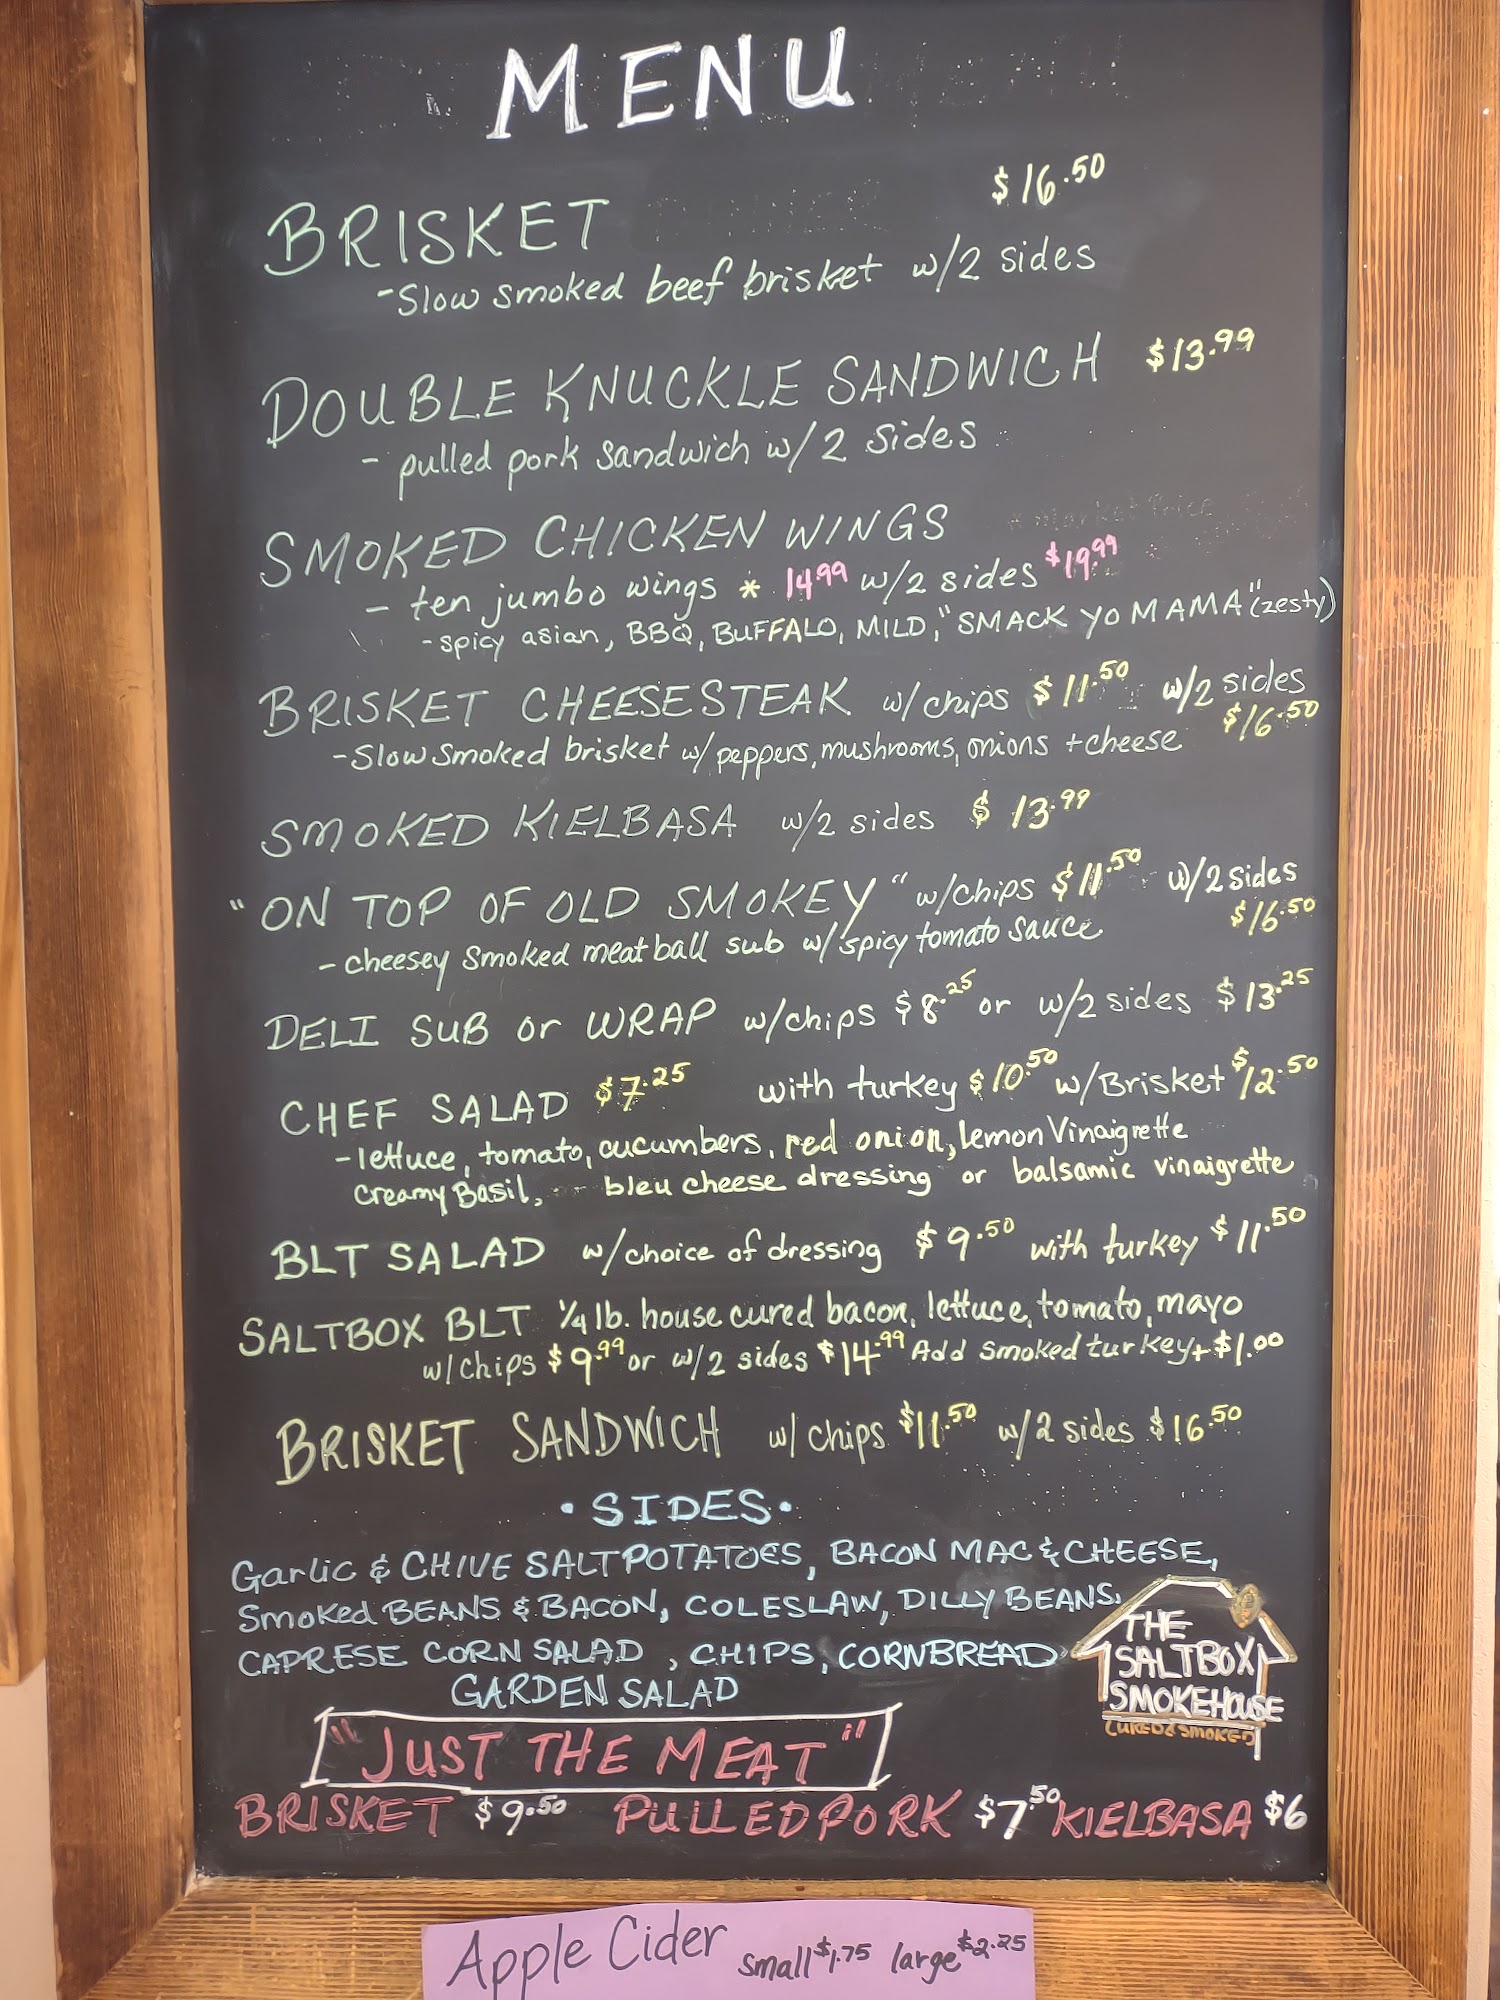 MENU
BRISKET $16.50
-Slow smoked beef brisket w/2 sides
DOUBLE KNUCKLE SANDWICH $13.99
- pulled pork sandwich w/2 sides
SMOKED CHICKEN WINGS * Market Price
- ten jumbo wings * 14.99 w/2 sides $19.99
-spicy asian, BBQ, BUFFALO, MILD, "SMACK YO MAMA" (zesty)
BRISKET CHEESESTEAK w/chips $11.50 w/2 sides $16.50
-Slow smoked brisket w/ peppers, mushrooms, onions + cheese
SMOKED KIELBASA w/2 sides $13.99
"ON TOP OF OLD SMOKEY" w/chips $11.50 w/2 sides $16.50
- cheesey smoked meatball sub w/spicy tomato sauce
DELI SUB or WRAP w/chips $8.25 or w/2 sides $13.25
CHEF SALAD $7.25 with turkey $10.50 w/Brisket $12.50
-lettuce, tomato, cucumbers, red onion, lemon Vinaigrette
Creamy Basil, bleu cheese dressing or balsamic vinaigrette
BLT SALAD w/choice of dressing $9.50 with turkey $11.50
SALTBOX BLT 1/4 lb. house cured bacon, lettuce, tomato, mayo
w/chips $9.99 or w/2 sides $14.99 Add smoked turkey + $1.00
BRISKET SANDWICH w/ chips $11.50 w/2 sides $16.50
• SIDES •
Garlic & CHIVE SALT POTATOES, BACON MAC & CHEESE,
Smoked BEANS & BACON, COLESLAW, DILLY BEANS,
CAPRESE CORN SALAD, CHIPS, CORNBREAD
GARDEN SALAD
THE
SALTBOX
SMOKEHOUSE
CURED & SMOKED
"JUST THE MEAT"
BRISKET $9.50 PULLED PORK $7.50 KIELBASA $6
Apple Cider small $1.75 large $2.25